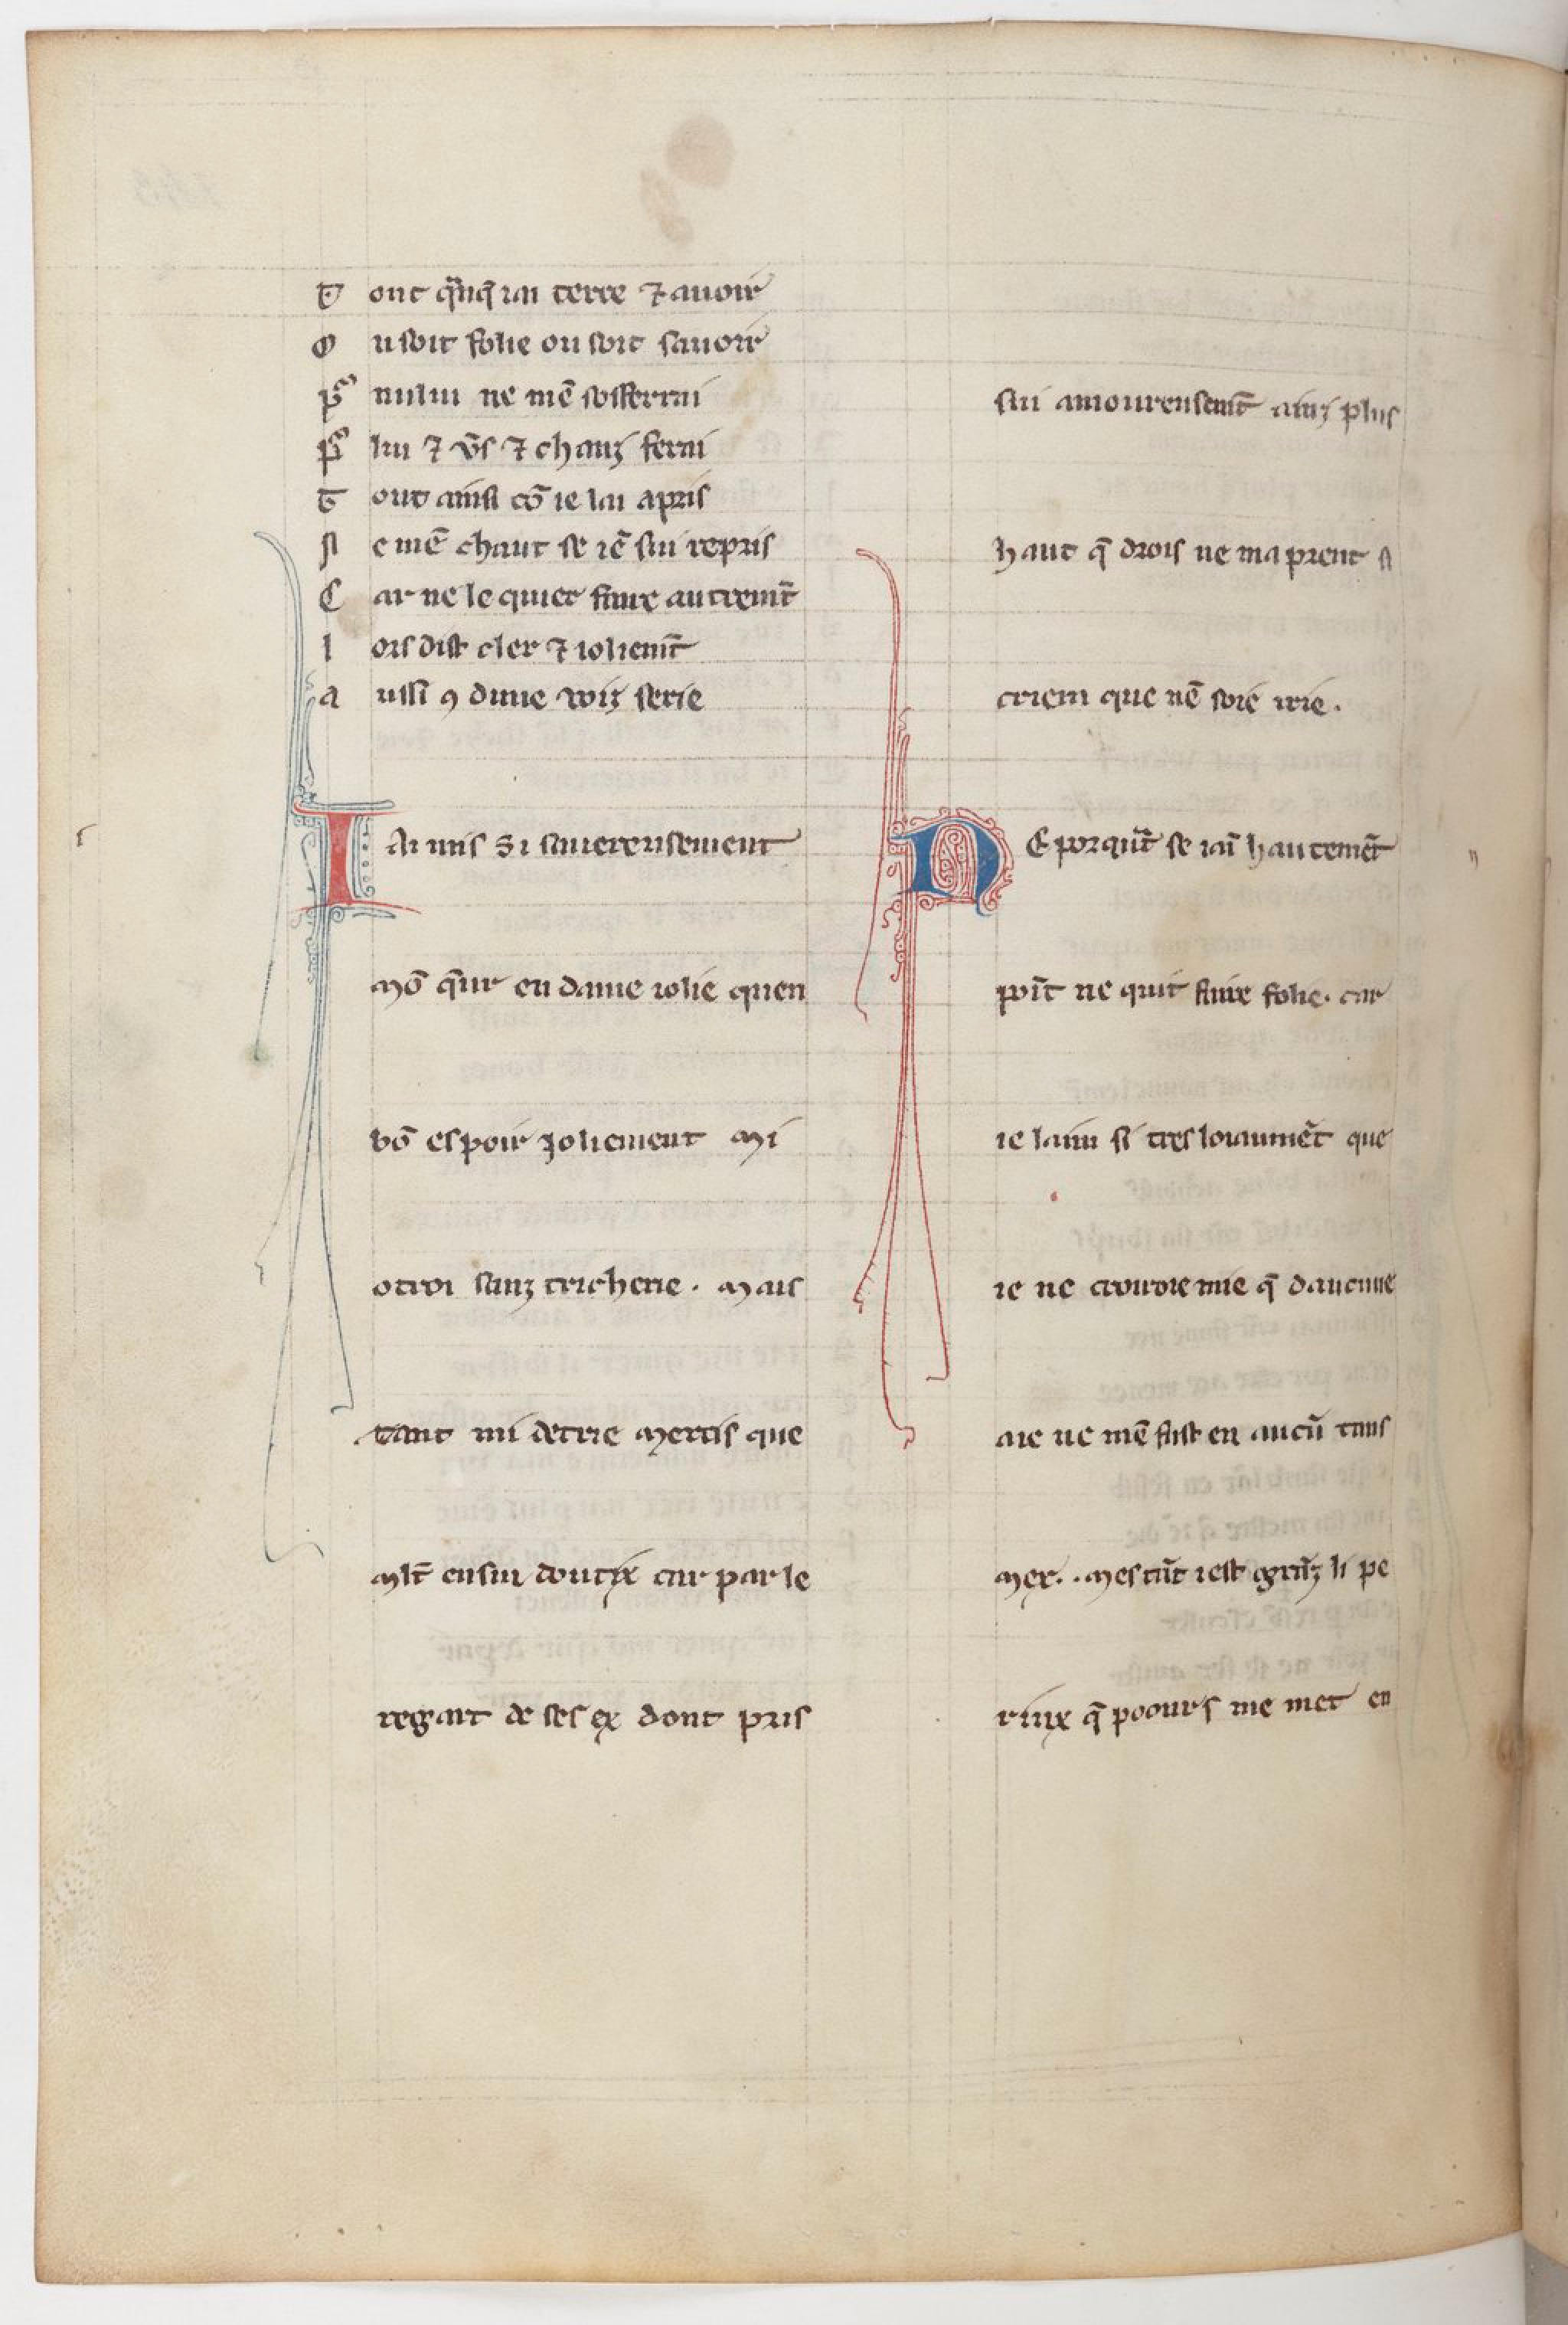 D ont q̃nq̃ iai terre ⁊ auoir
O u soit folie ou soit sauoir
pᵃ nului ne mẽ sofferrai
pᵃ lui ⁊ v̄s ⁊ chanz ferai
T out ainsi cõ ie lai apris
N e mẽ chaut se iẽ sui repris
C ar ne le quier faire autremt̃
l ors dist cler ⁊ ioliemt̃
a ussi ꝯ dune voiz serie
I Ai mis si sauereusement
Mõ q̃ur en dame iolie quen
bõ espoir Joliement Mi
otroi sanz tricherie. Mais
tant mi detrie Mercis que
Mlt̃ ensui doutex car par le
regart de ses ex dont pris
sui amoureusemt̃ ainz plus
haut q̃ drois ne maprent si
criem que nẽ soie irie.
N E porqũt se iaĩ hautemẽt
poĩt ne quit faire folie. car
ie laim si tres loiaumẽt que
ie ne croiroie mie q̃ daucune
aie ne mẽ fust en aucũ tans
Mex. Mes tãt iest grãz li pe
riux q̃ poours me met en